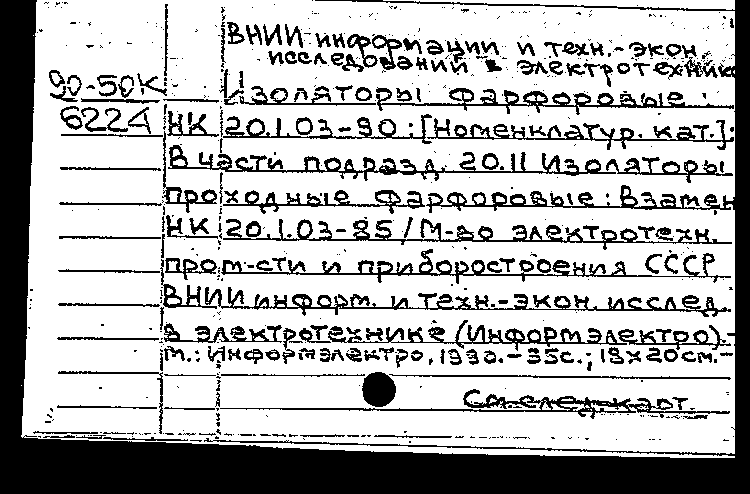 ВНИИ информации и техн.-экон.
исследований в электротехнике
90-50К
Изоляторы фарфоровые :
6224
НК 20.1.03-90 : [Номенклатур. кат.]:
В части подразд. 20.11 Изоляторы
проходные фарфоровые : Взамен
НК 20.1.03-85 / М-во электротехн.
пром-сти и приборостроения СССР,
ВНИИ информ. и техн.-экон. исслед.
в электротехнике (Информэлектро).-
М.: Информэлектро, 1990.-35с.; 19х20см.-
См.след.карт.